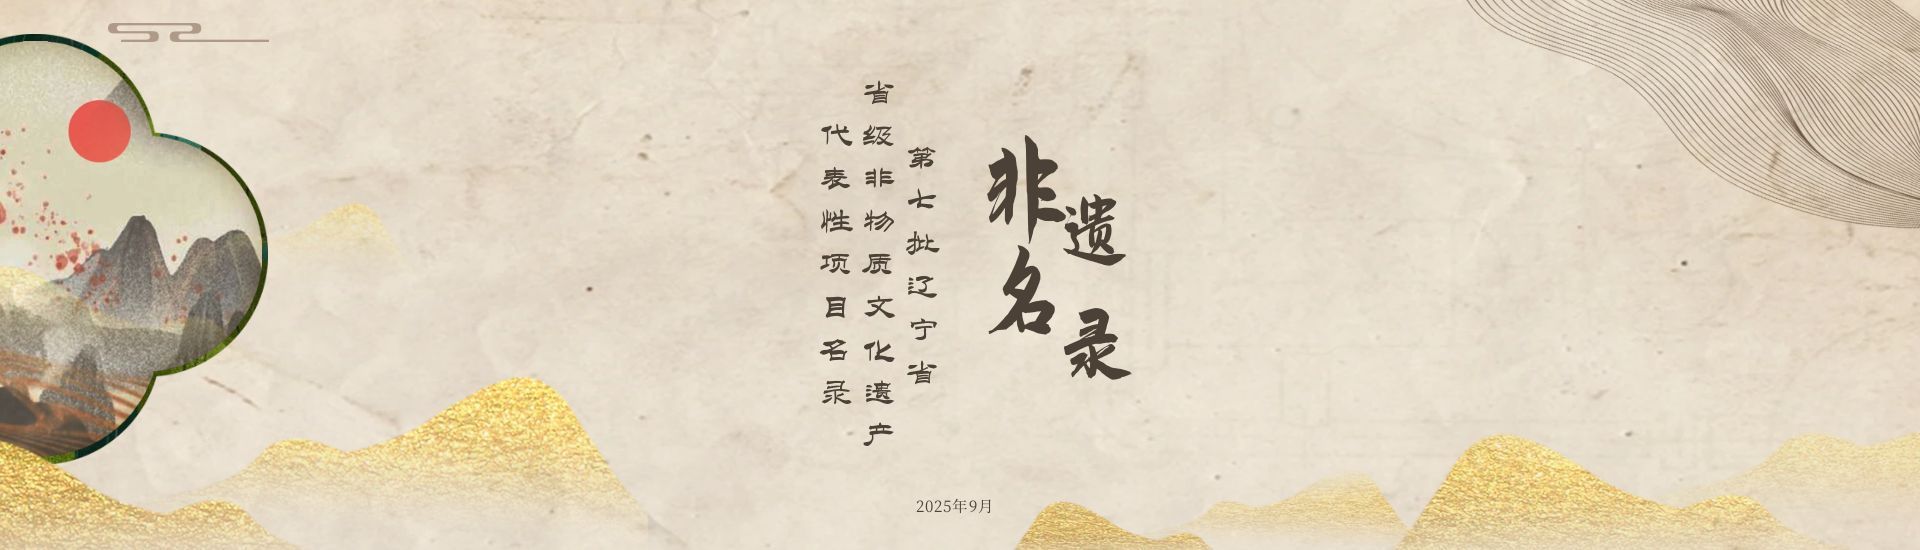 非遗
名录
第七批辽宁省
省级非物质文化遗产
代表性项目名录
2025年9月